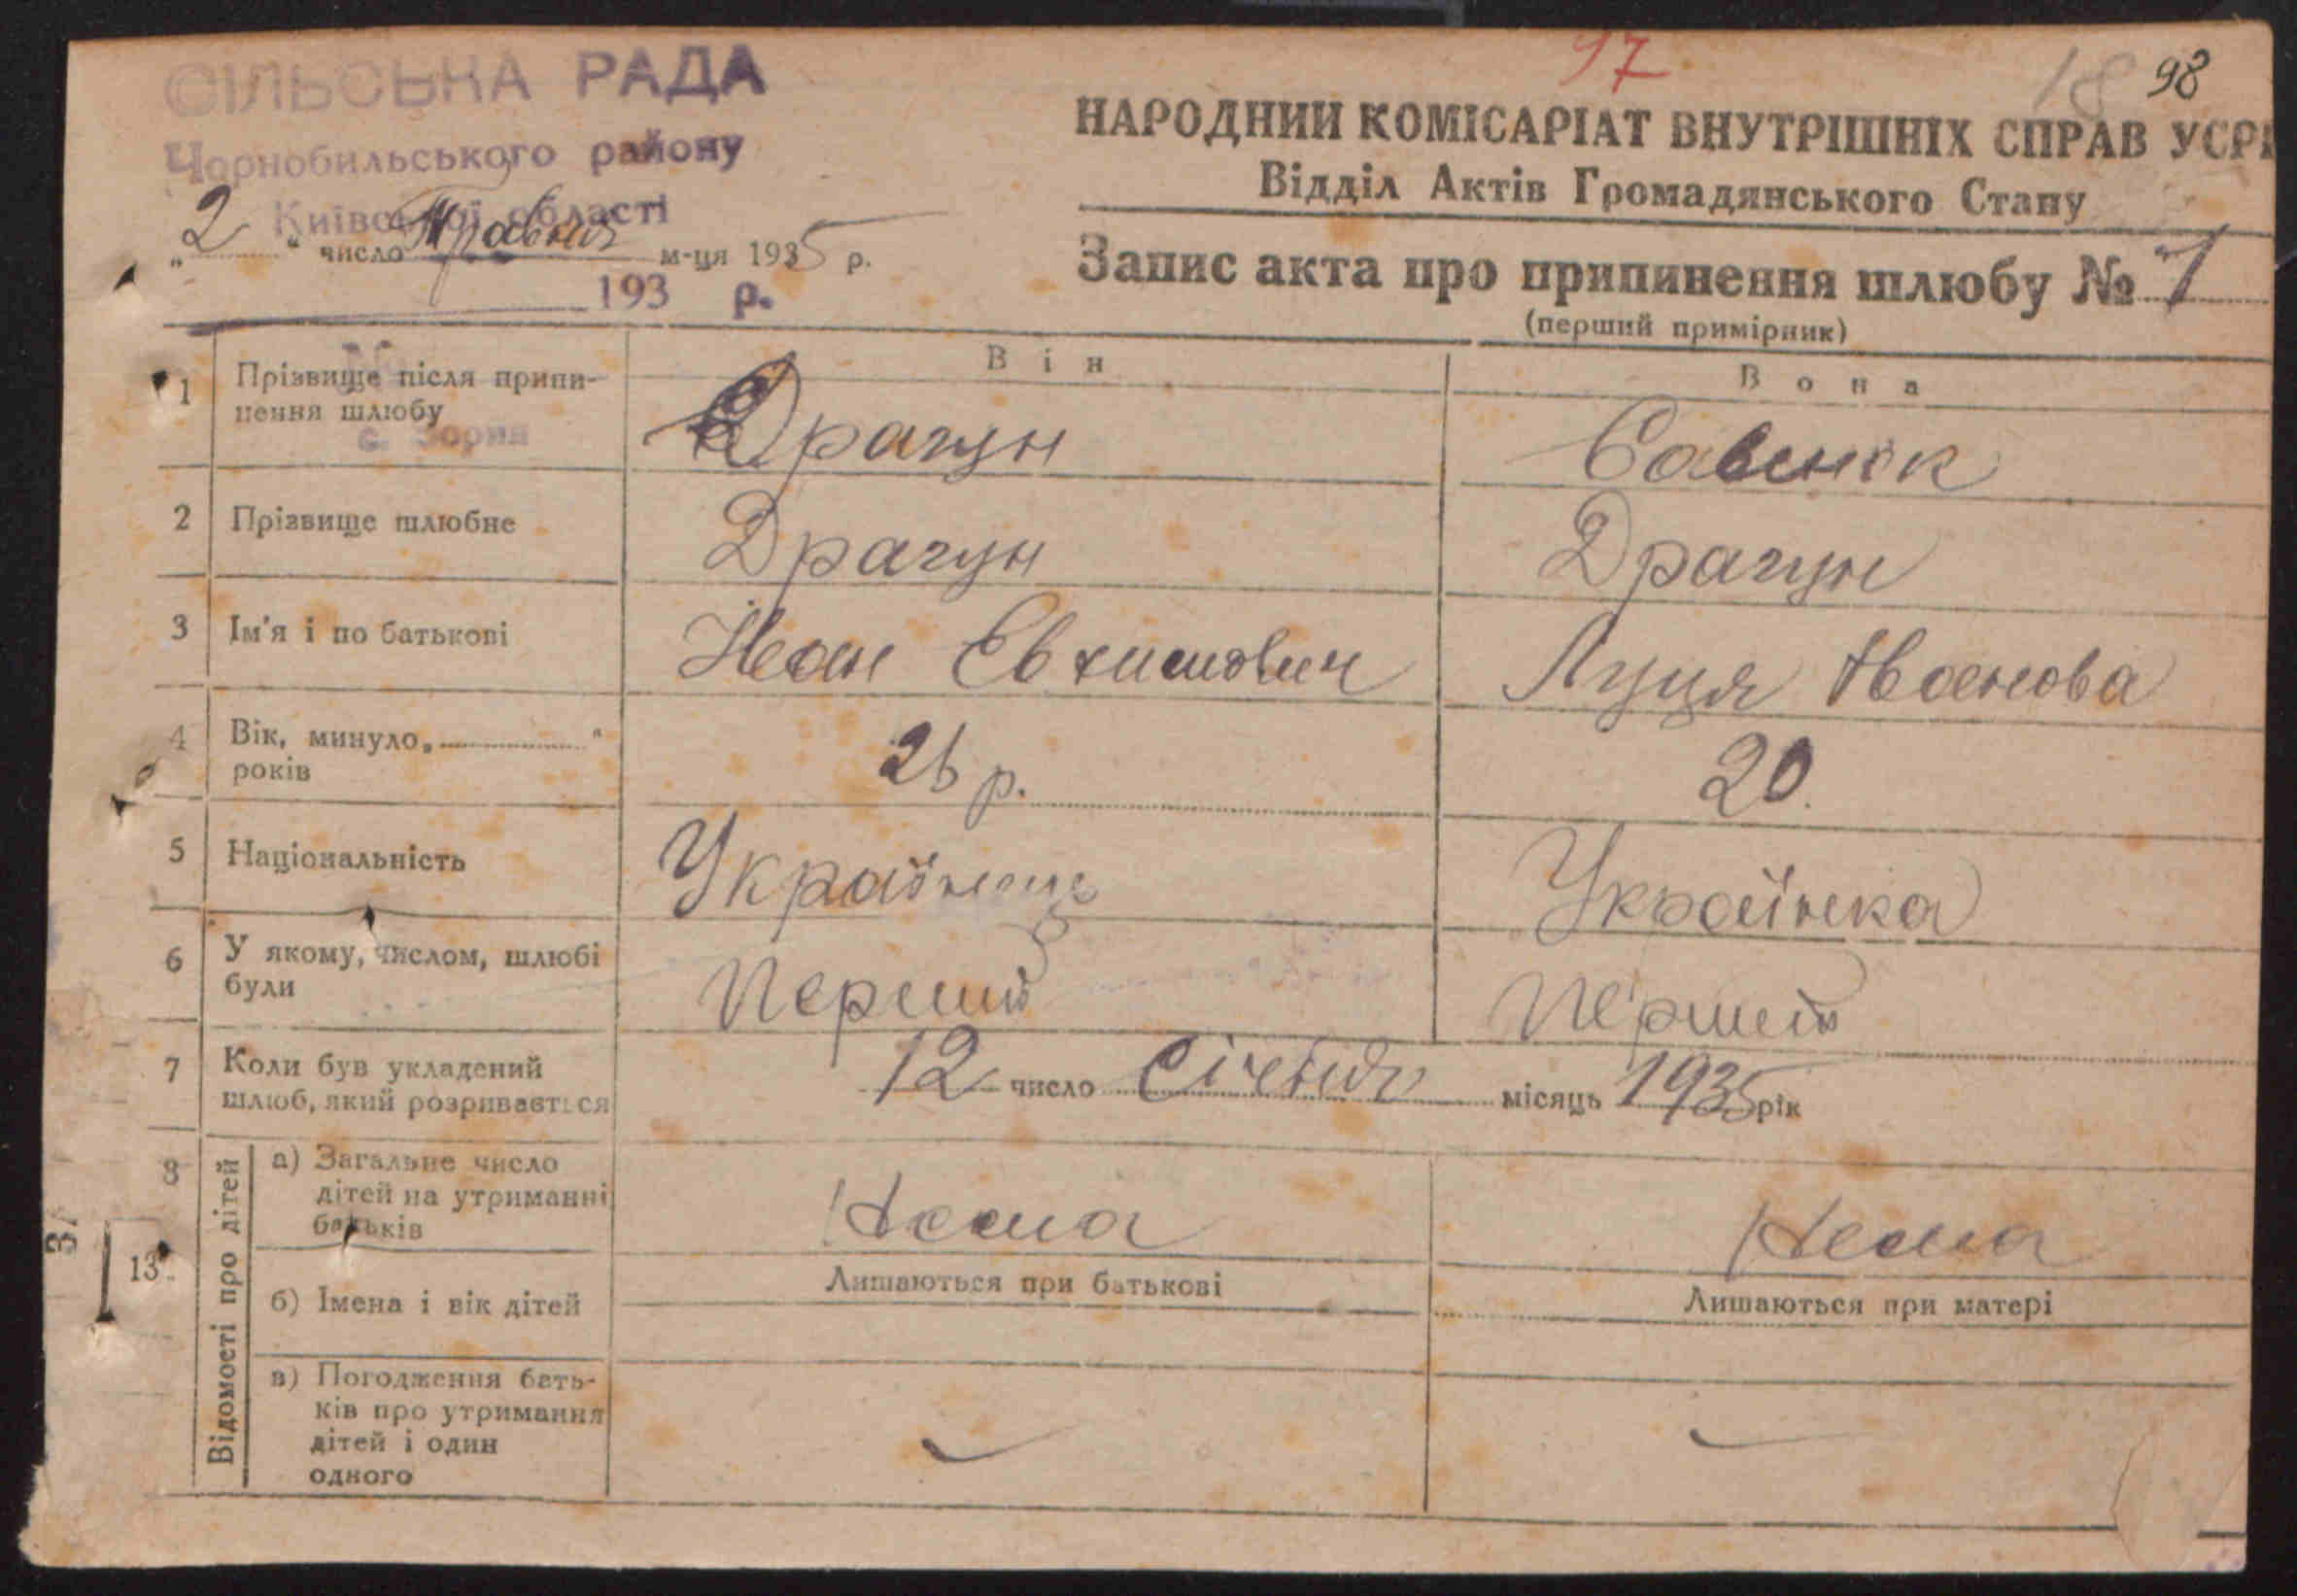 97
18 98
СІЛЬСЬКА РАДА
Чорнобильського району
Київської області
„2“ число Травня м-ця 1935 р.
193 р.
НАРОДНИЙ КОМІСАРІАТ ВНУТРІШНІХ СПРАВ УСРР
Відділ Актів Громадянського Стану
Запис акта про припинення шлюбу № 7
(перший примірник)
Він Вона
1 Прізвище після припи-
нення шлюбу Драгун Савенок
с. Зорин
2 Прізвище шлюбне Драгун Драгун
3 Ім'я і по батькові Іван Евхимович Луця Іванова
4 Вік, минуло „..........“
років 26 р. 20.
5 Національність Українець Українка
6 У якому, числом, шлюбі
були Перший Перший
7 Коли був укладений
шлюб, який розривається 12 число Січня місяць 1935 рік
8 Відомості про дітей
а) Загальне число
дітей на утриманні
батьків Нема Нема
Лишаються при батькові Лишаються при матері
б) Імена і вік дітей
в) Погодження бать-
ків про утримання
дітей і один
одного
13